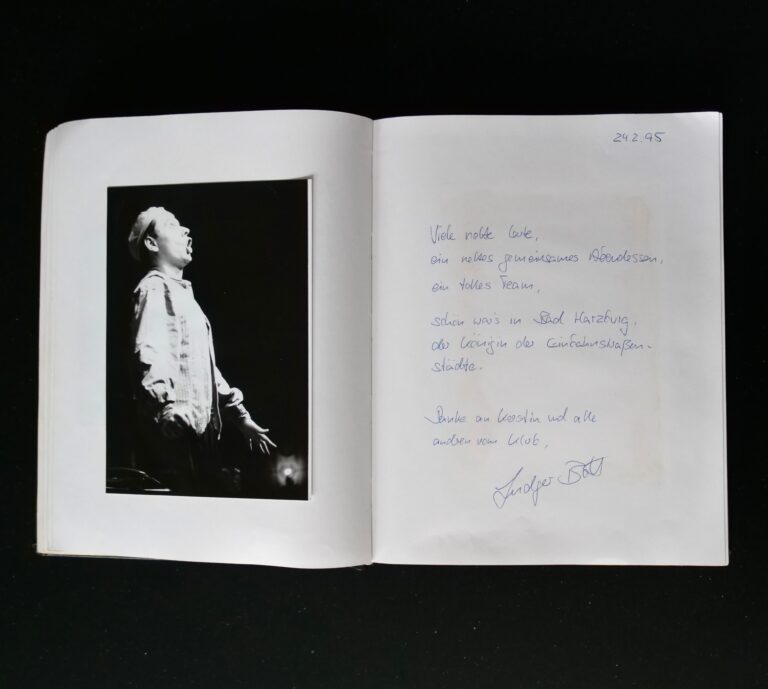 24.2.95
Viele nette Leute,
ein nettes gemeinsames Abendessen,
ein tolles Team,
schön war's in Bad Harzburg,
der Königin der Einbahnstraßen-
städte.
Danke an Kerstin und alle
andren vom Klub,
Ludger